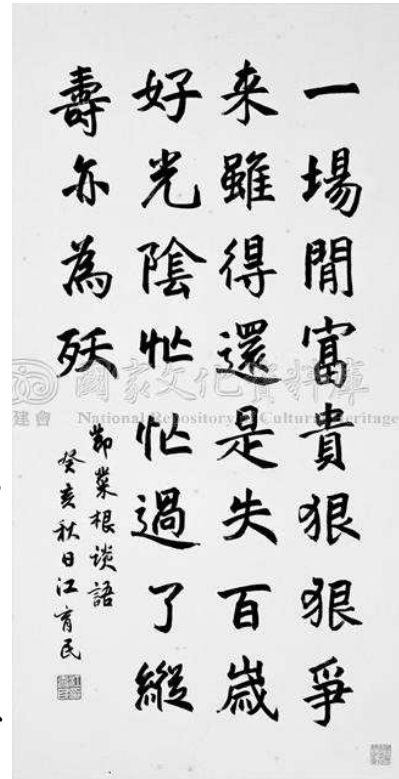 一場閒富貴狠狠爭
来雖得還是失百歲
好光陰忙忙過了縱
壽亦為殀
節菜根谈語
癸亥秋日江育民
國家文化資料庫
建會 National Repository of Cultural Heritage